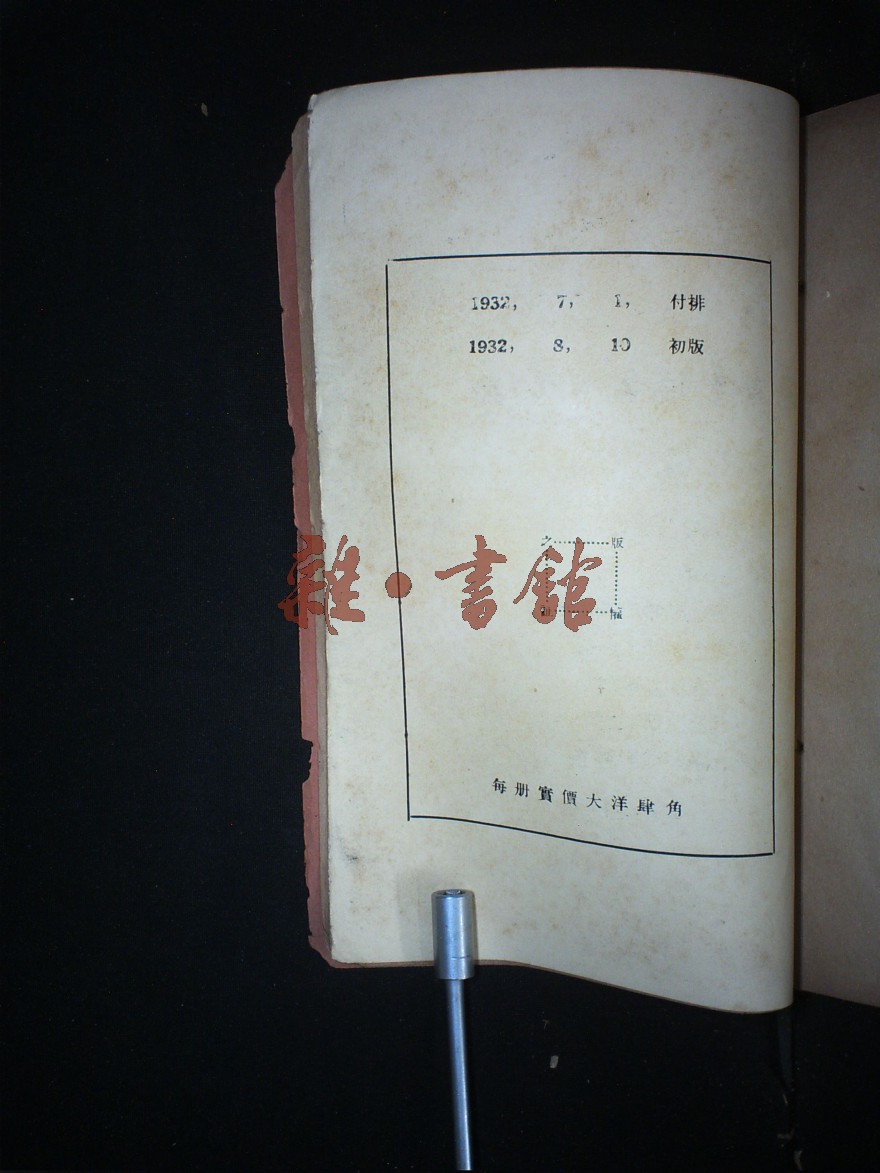 1932, 7, 1, 付排
1932, 8, 10 初版
之 版
權
雜·書館
每册實價大洋肆角